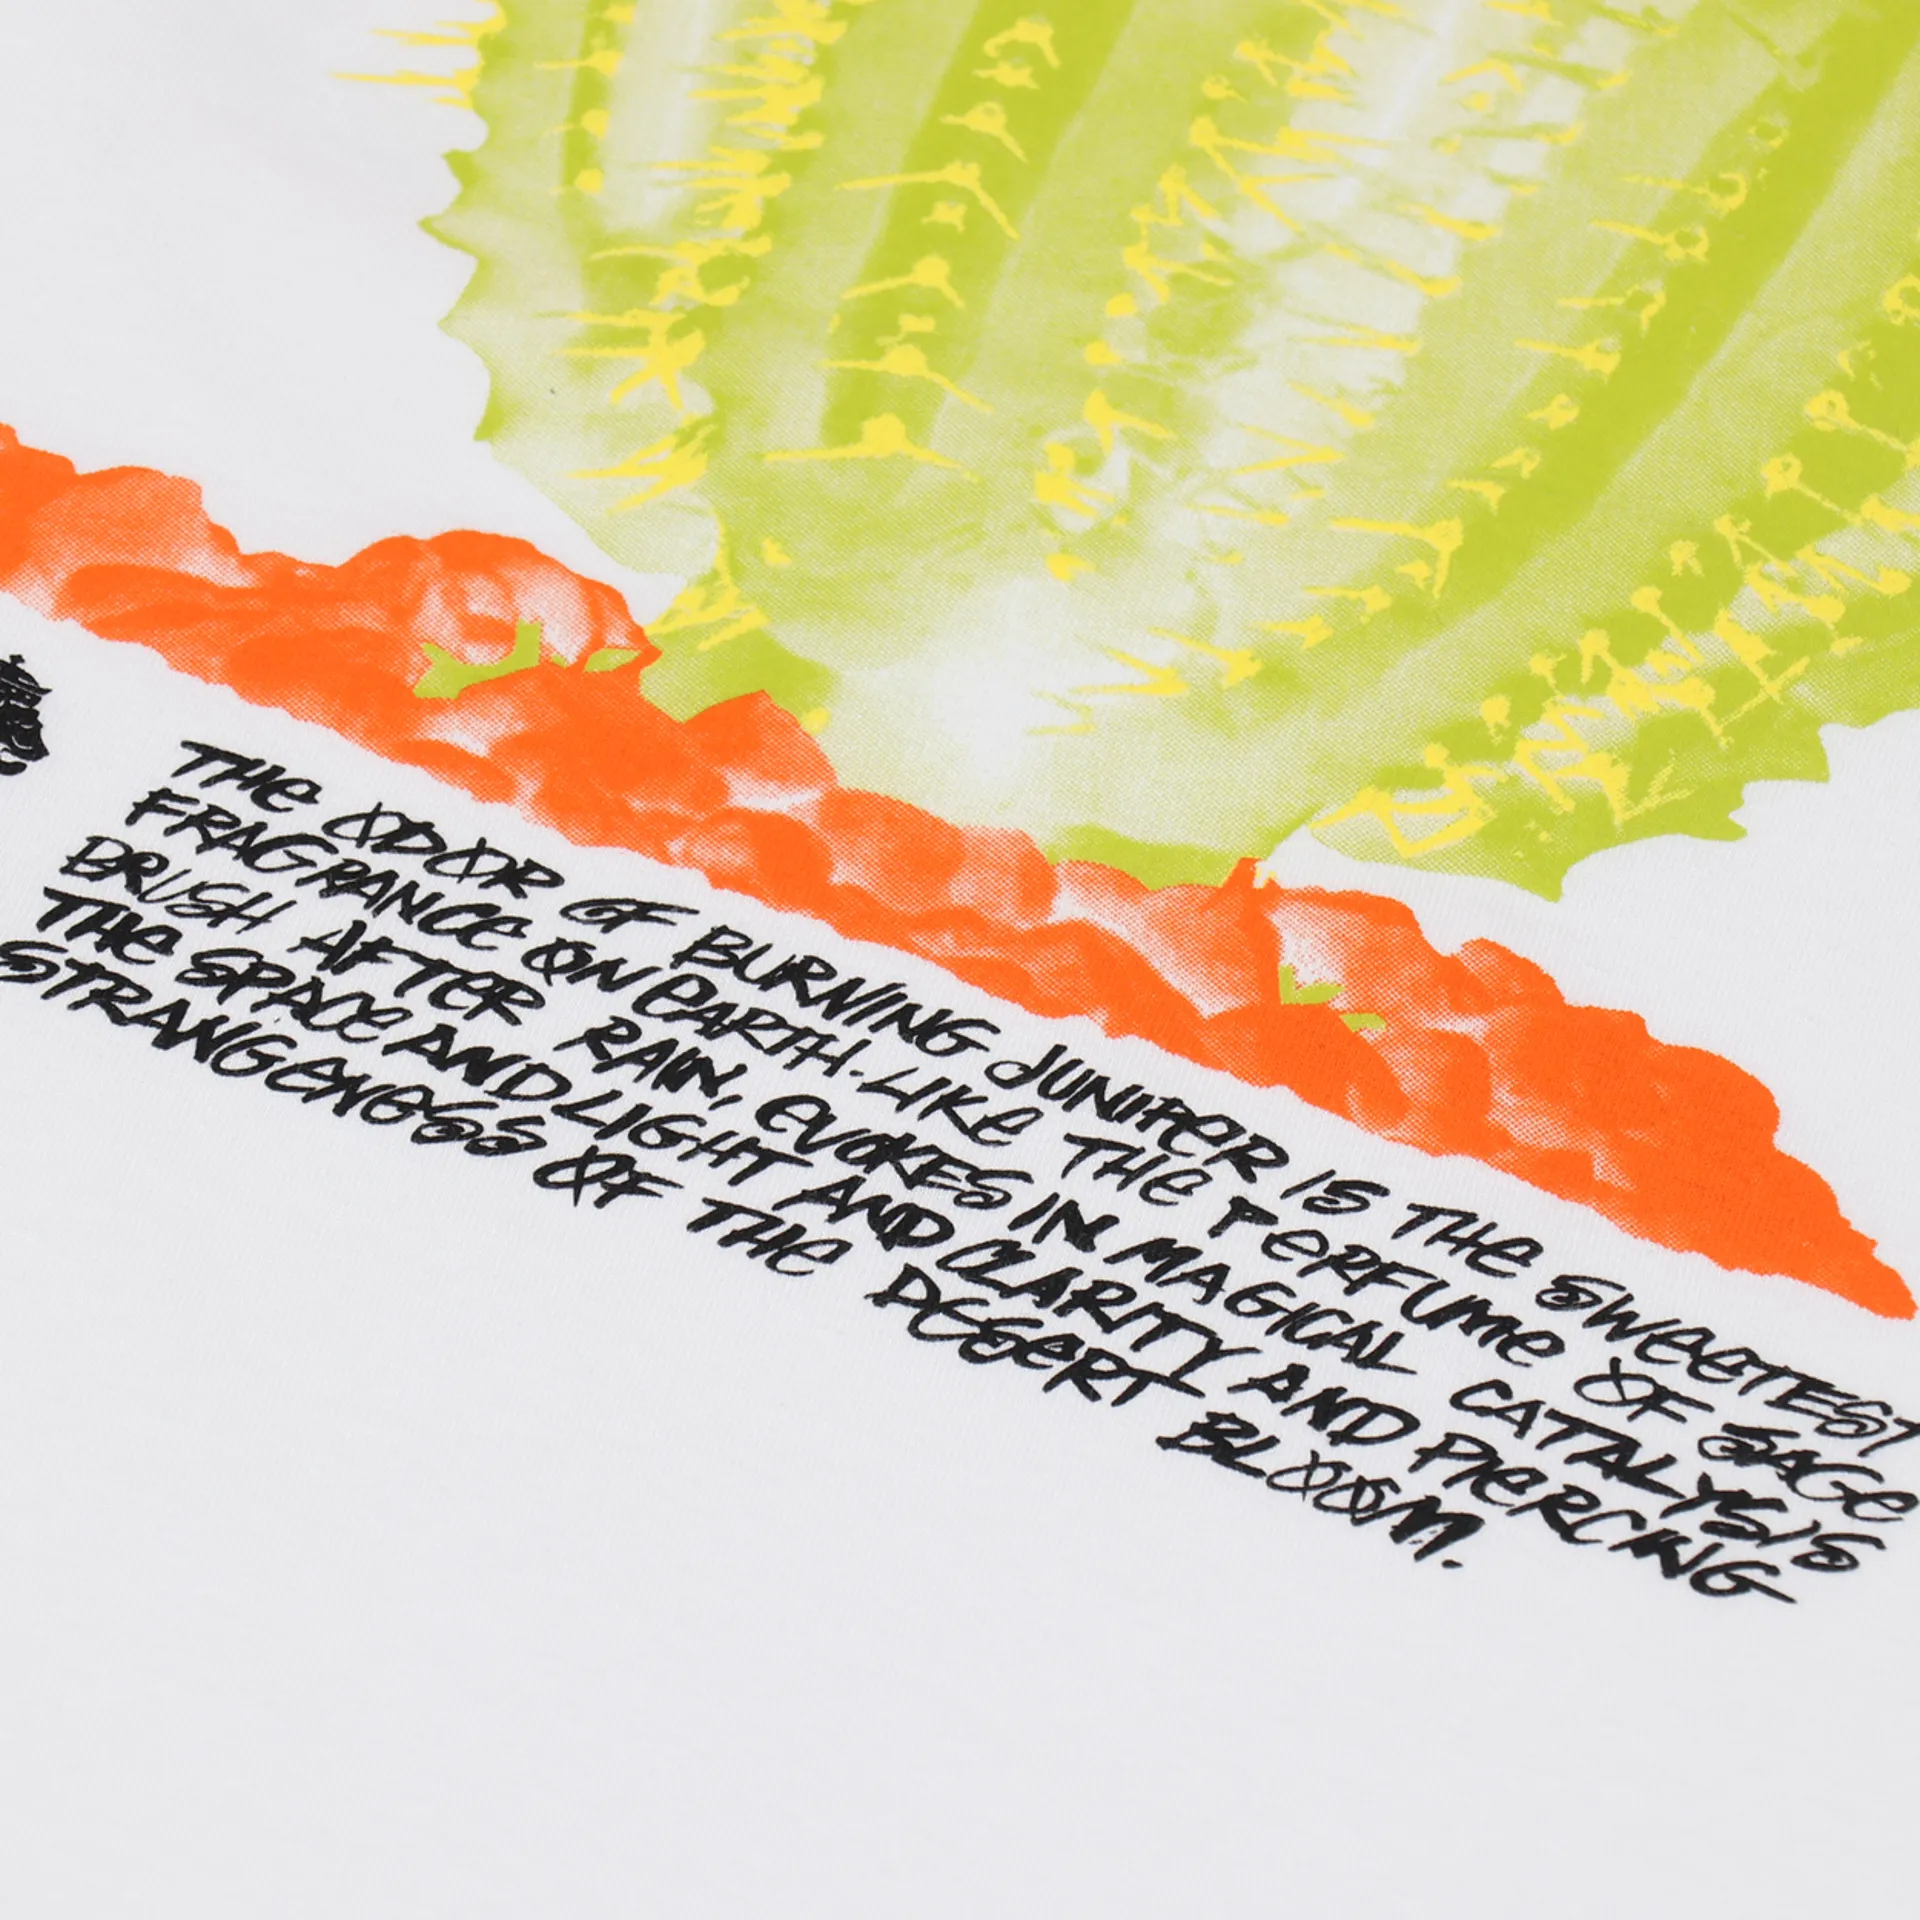 THE ODOR OF BURNING JUNIPER IS THE SWEETEST
FRAGRANCE ON EARTH. LIKE THE PERFUME OF SAGE
BRUSH AFTER RAIN, EVOKES IN MAGICAL CATALYSIS
THE SPACE AND LIGHT AND CLARITY AND PIERCING
STRANGENESS OF THE DESERT BLOOM.